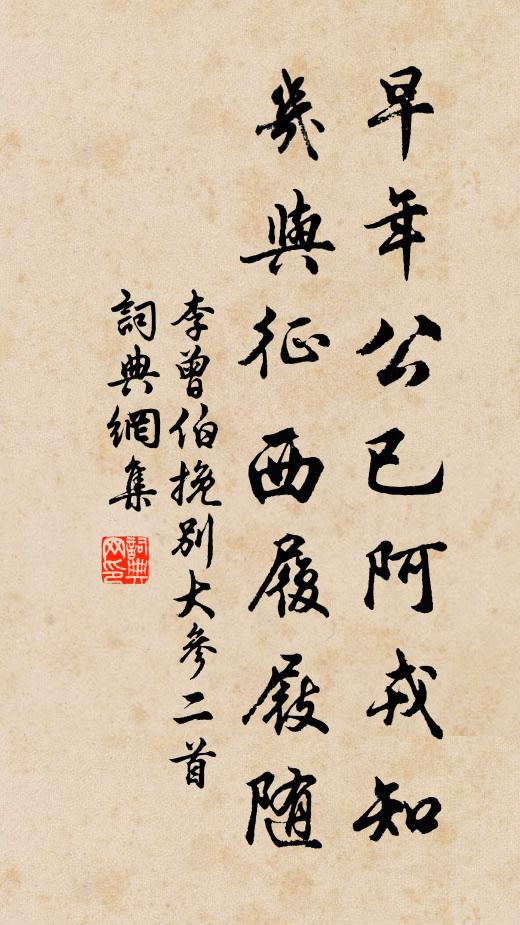 早年公已阿戎知
幾與征西履屐隨
李曾伯挽別大參二首
詞典網集
詞典
网印